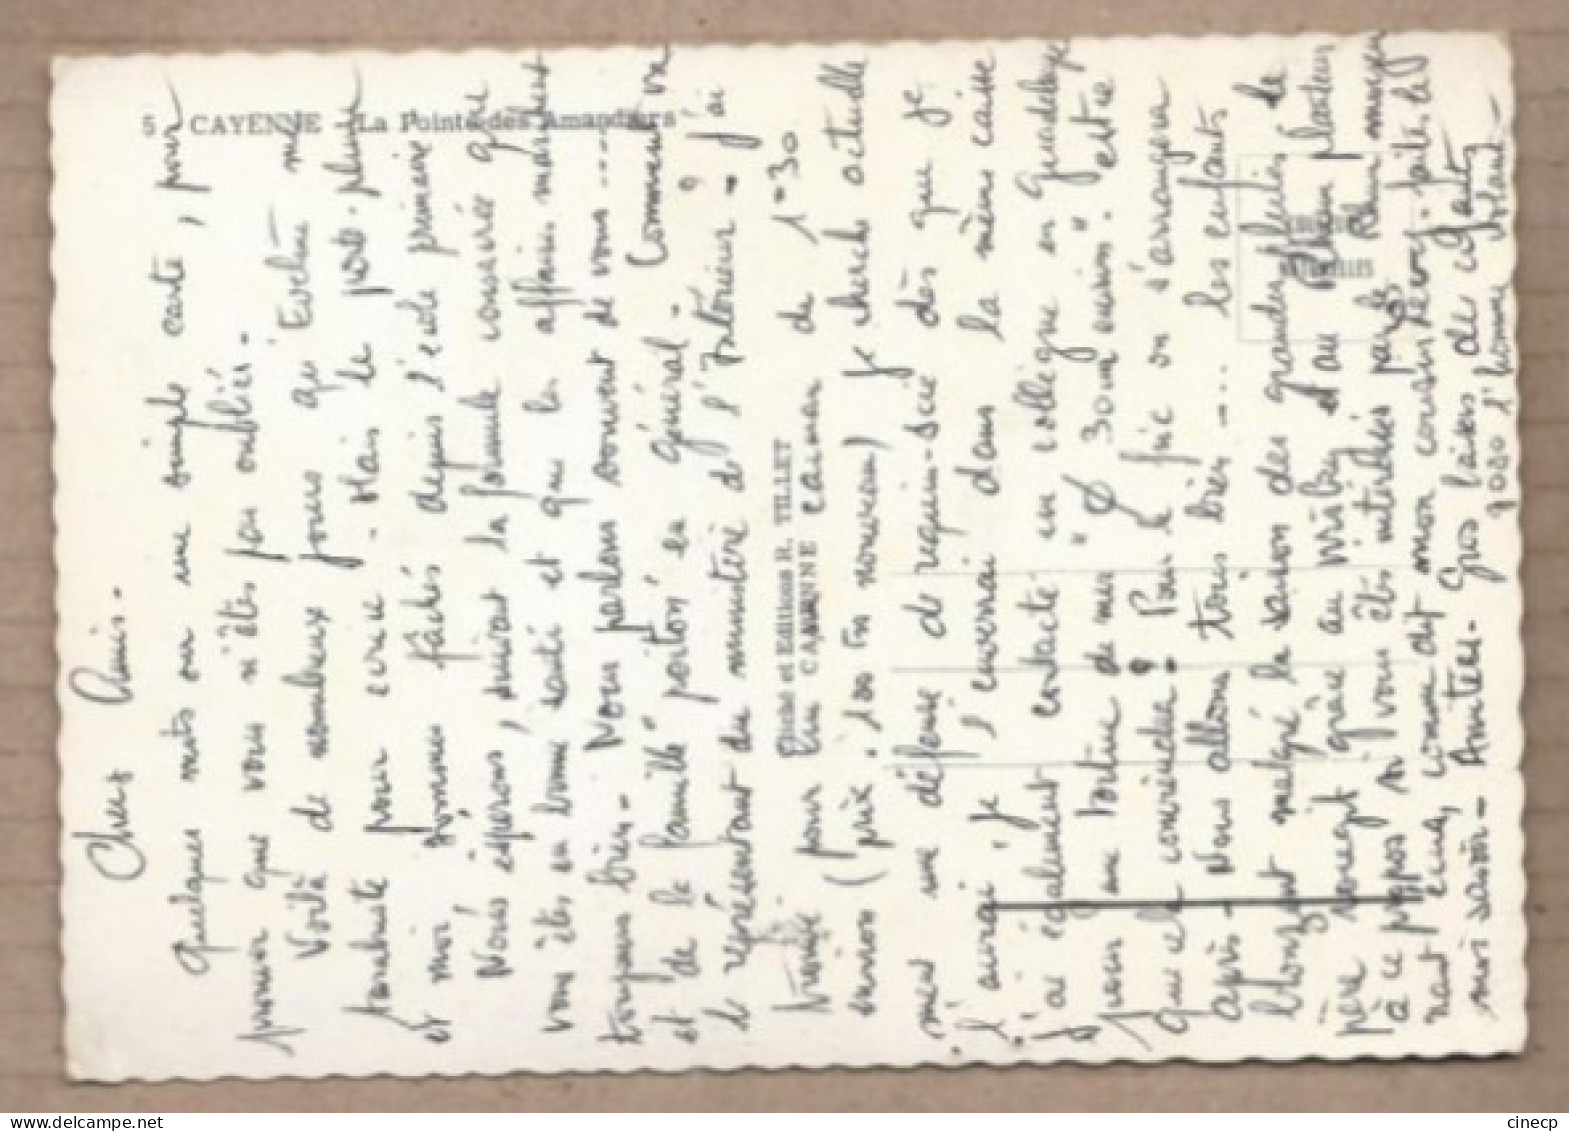 5 - CAYENNE - La Pointe des Amandiers
Cliché et Editions R. TILLET
CAYENNE
Chers Amis -
Quelques mots sur une simple carte, pour
prouver que vous n'êtes pas oubliés -
Voilà de nombreux jours qu'Evelyne me
pour écrire - Mais le porte-plume
et moi sommes fâchés depuis l'école primaire
Nous espérons, suivant la formule consacrée que
vous êtes en bonne santé et que les affaires marchent
toujours bien - Nous parlons souvent de vous ....
et de la famille en général - Comment va
le représentant du ministère de l'Intérieur ? - j'ai
pour un caiman de 1m30
environ (prix : 100 Frs nouveaux) je cherche actuelle
ment une défense de requin-scie dès que je
l'aurai, je l'enverrai dans la même caisse
J'ai également contacté un collègue en Guadeloupe
pour une tortue de mer "Ø 30 cm environ". Est-ce
que cela conviendra ? Pour le fric on s'arrangera
après - Nous allons tous bien .... les enfants
malgré la saison des grandes pluies - Le
père grâce au whisky et au Rhum planteur
à ce propos si vous êtes intéressés par le Rhum moyen
nant cinq, comme dit mon cousin Devos - faites le
moi savoir - Amitiés - Gros baisers de